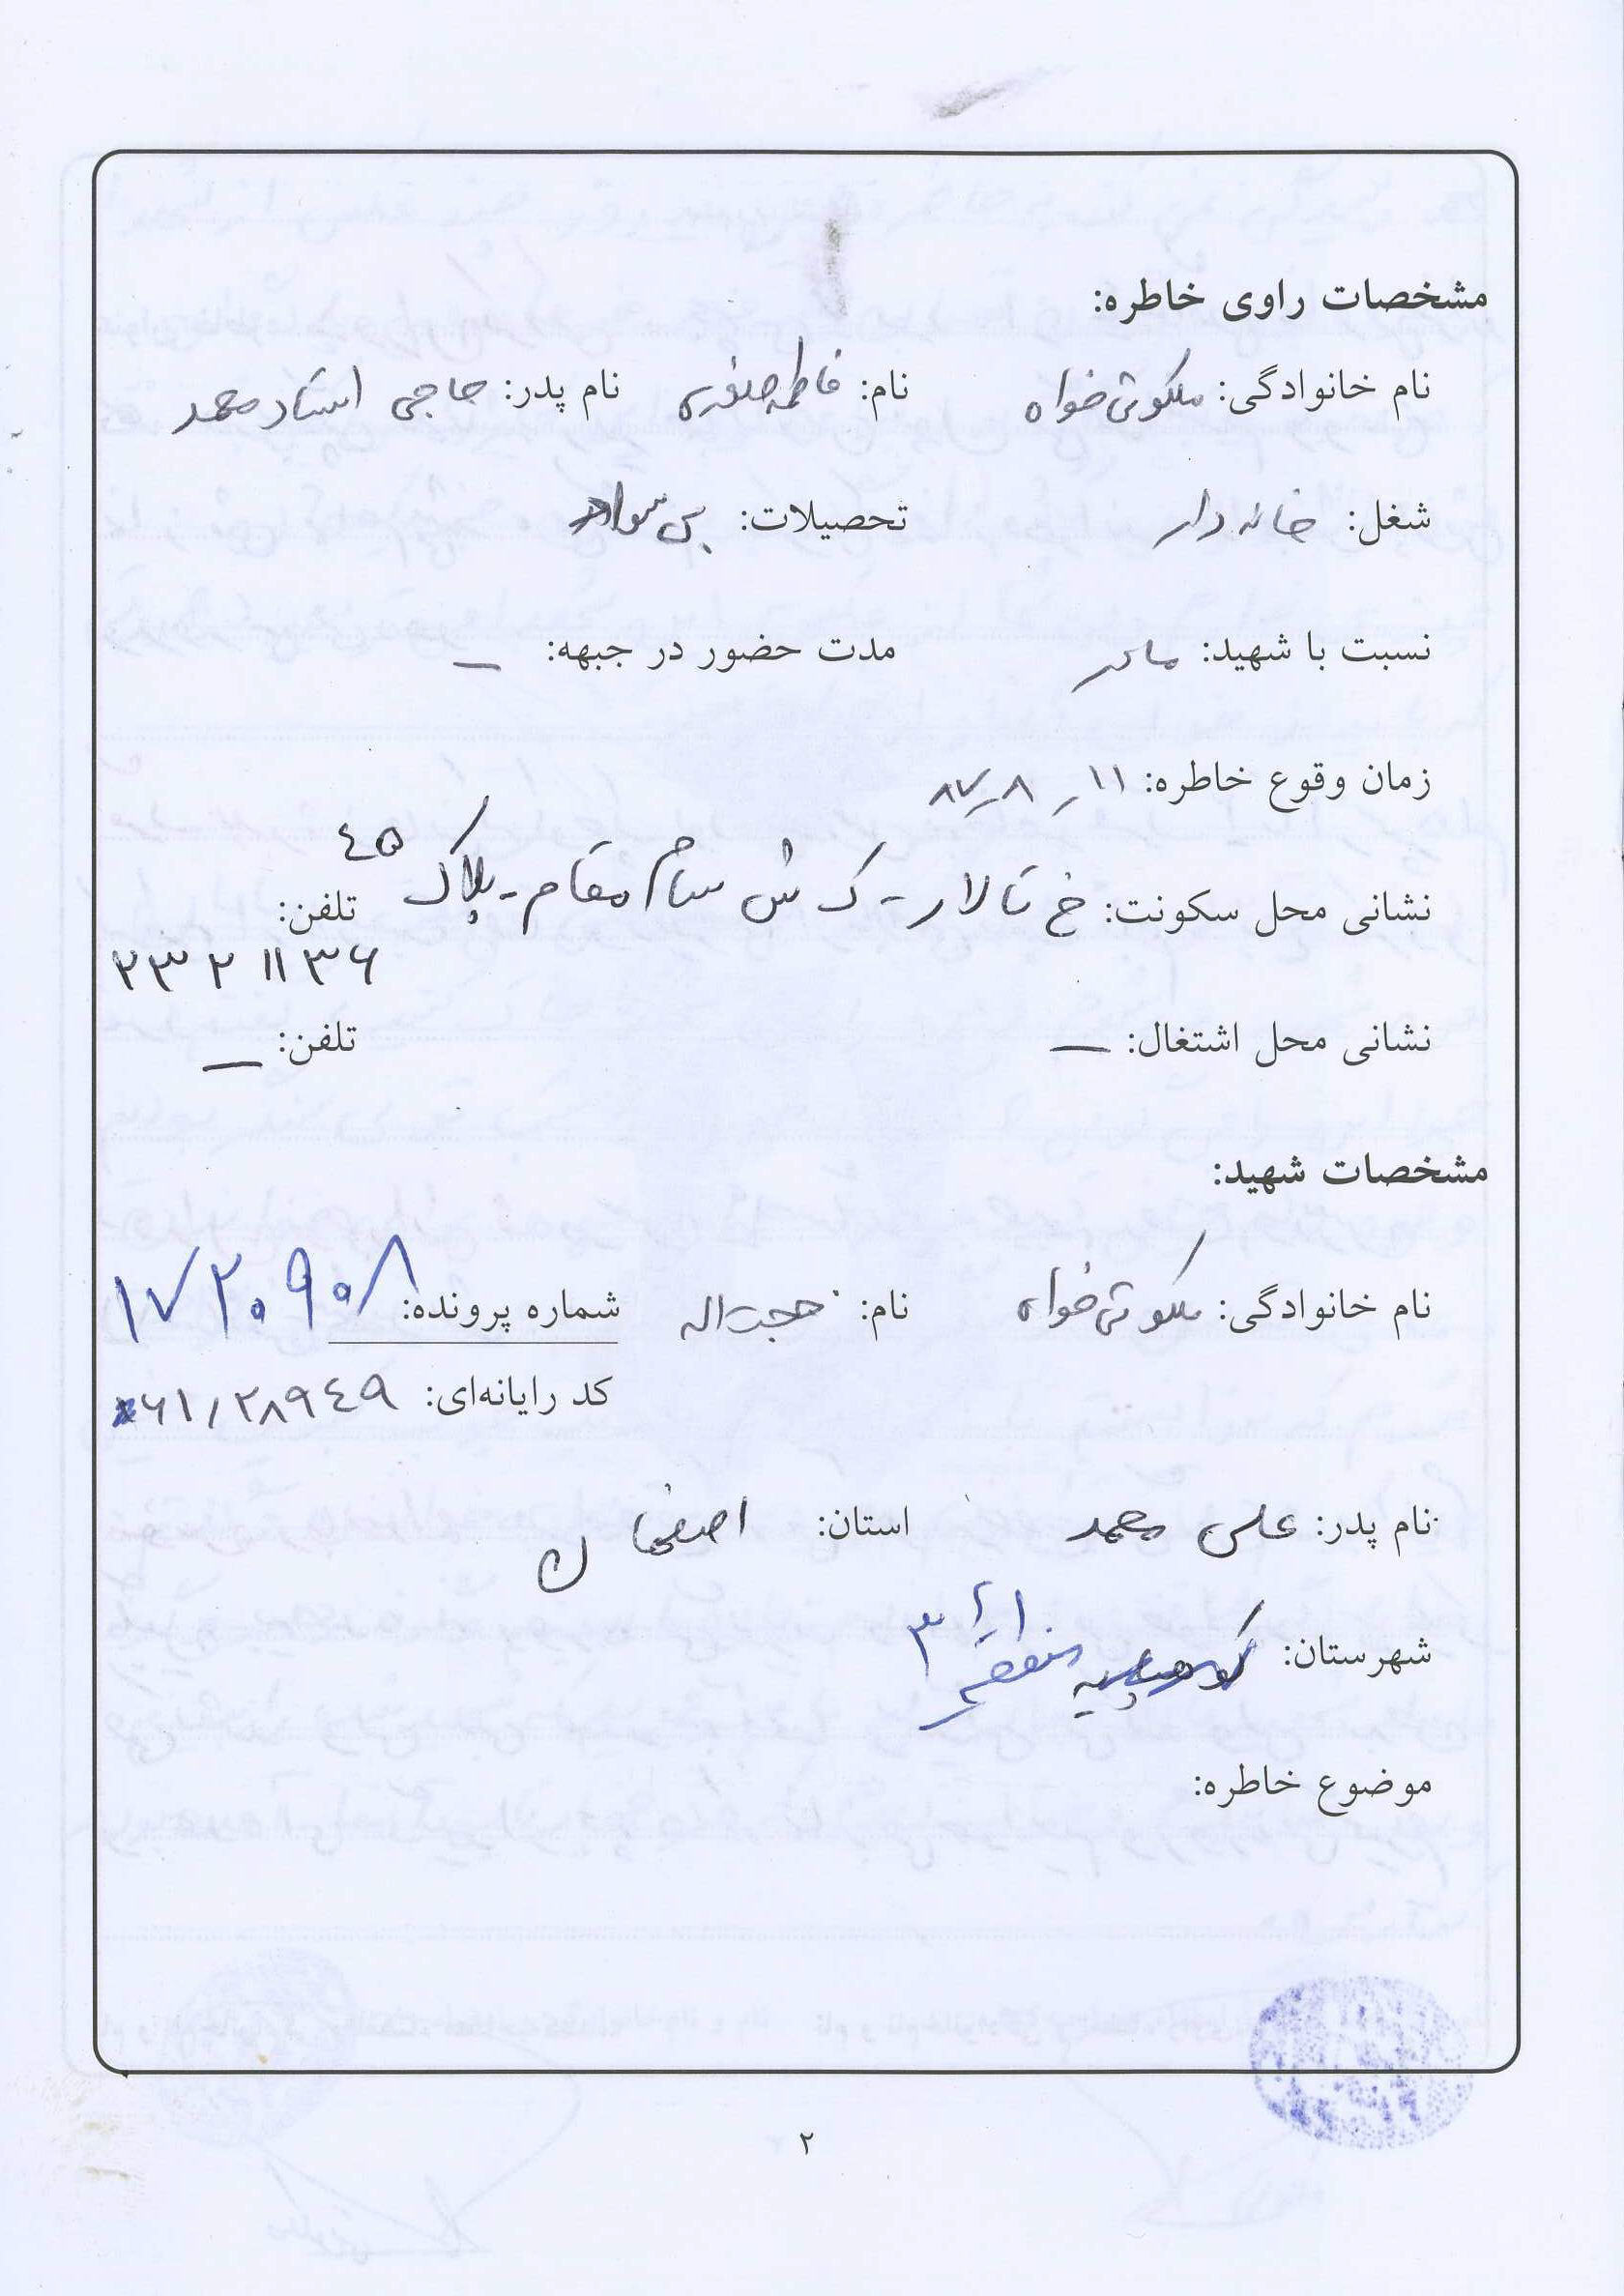 مشخصات راوی خاطره:
نام خانوادگی: ملکوتی خواه نام: فاطمه صغری نام پدر: حاجی استاد محمد
شغل: خانه دار تحصیلات: بی سواد
نسبت با شهید: مادر مدت حضور در جبهه: ــ
زمان وقوع خاطره: ۱۱ ـ ۸ ـ ۸۷
نشانی محل سکونت: خ تالار - ک ش مقام - پلاک ۴۵ تلفن:
۲۳۲۱۱۳۶
نشانی محل اشتغال: ــ تلفن: ــ
مشخصات شهید:
نام خانوادگی: ملکوتی خواه نام: حجت اله شماره پرونده: ۱۷۲۰۹۰۸
کد رایانه‌ای: ۶۱/۲۸۹۴۹
نام پدر: علی محمد استان: اصفهان
شهرستان: کوهپایه منطقه ۳
موضوع خاطره:
۲